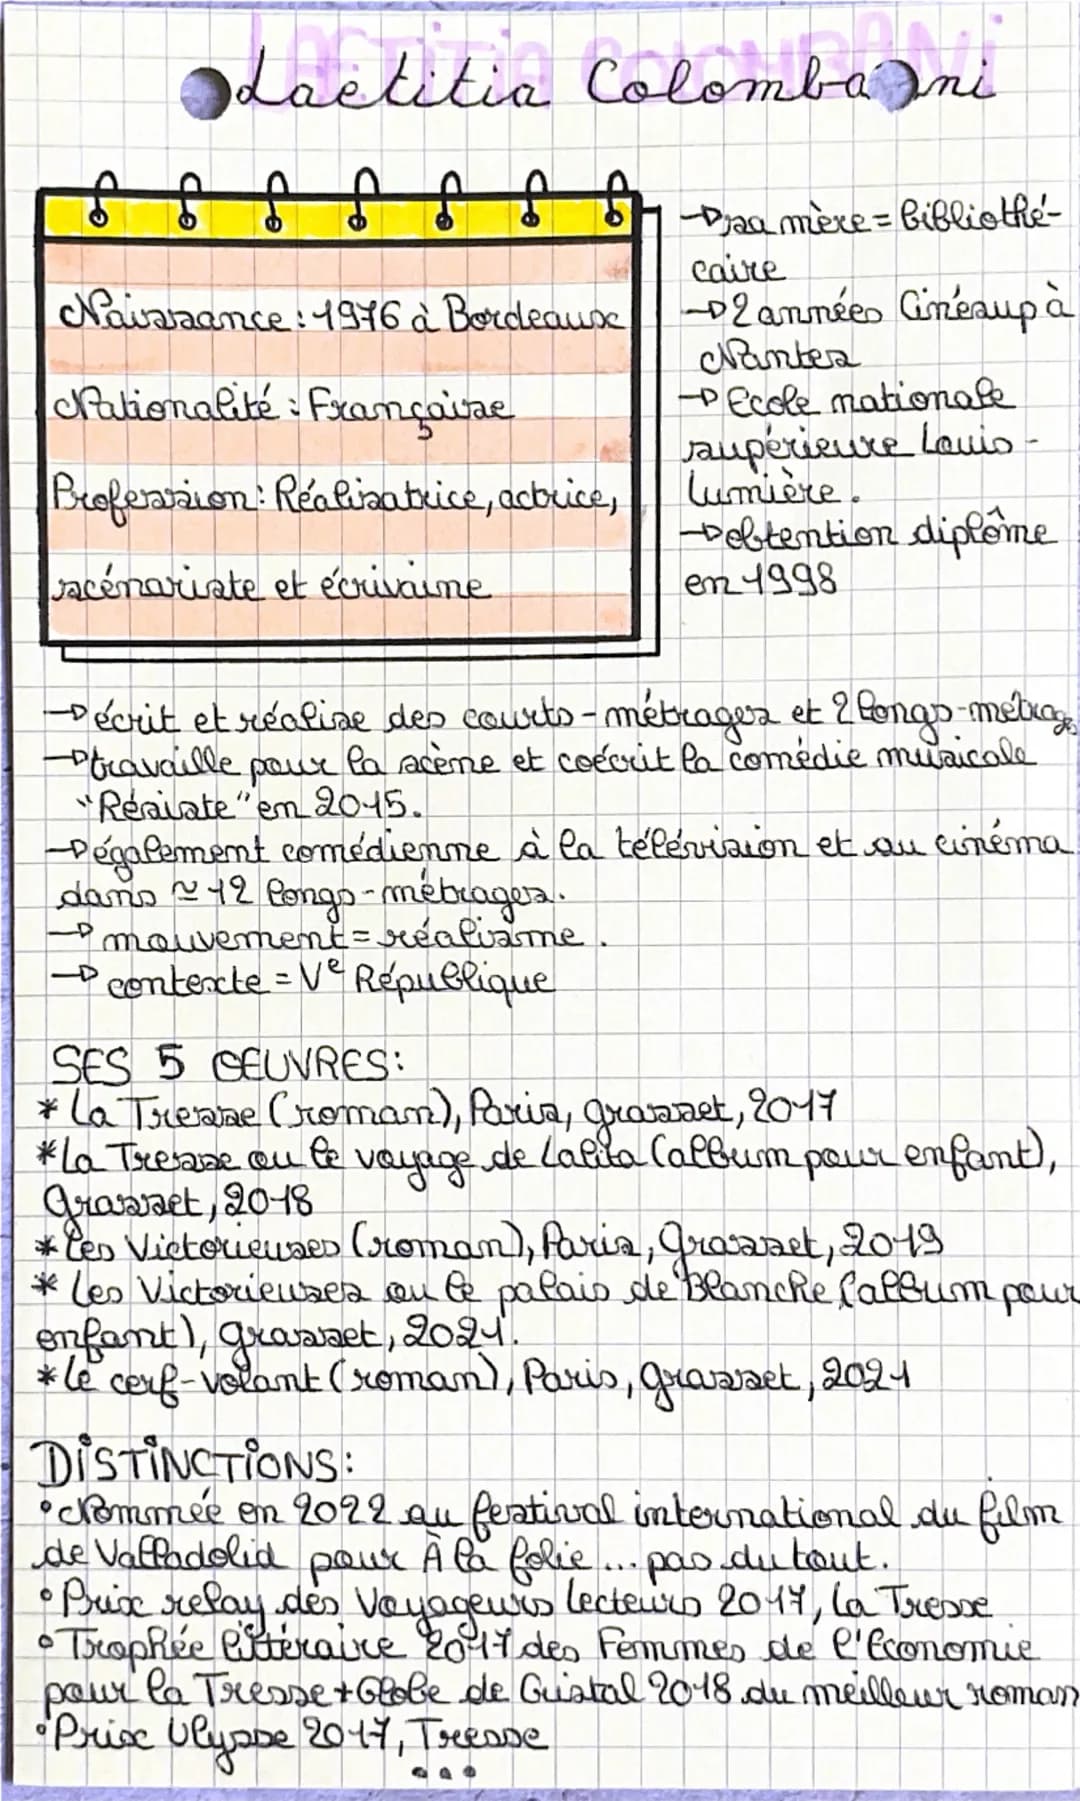 Laetitia Colombani
Naissance : 1976 à Bordeaux
Nationalité : Française
Profession : Réalisatrice, actrice,
scénariste et écrivaine
→ sa mère = bibliothé-
caire
→ 2 années Cinésup à
Nantes
→ Ecole nationale
supérieure Louis-
Lumière.
→ obtention diplôme
en 1998
→ écrit et réalise des courts-métrages et 2 longs-métrages
→ travaille pour la scène et coécrit la comédie musicale
"Résiste" en 2015.
→ également comédienne à la télévision et au cinéma
dans ≃ 12 longs-métrages.
→ mouvement = réalisme.
→ contexte = Ve République
SES 5 ŒUVRES:
* La Tresse (roman), Paris, grasset, 2017
* La Tresse ou le voyage de Lalita (album pour enfant),
grasset, 2018
* Les Victorieuses (roman), Paris, grasset, 2019
* Les Victorieuses ou le palais de Blanche (album pour
enfant), grasset, 2021.
* Le cerf-volant (roman), Paris, grasset, 2021
DiSTiNCTiONS:
• Nommée en 2022 au festival international du film
de Valladolid pour À la folie... pas du tout.
• Prix relay des Voyageurs lecteurs 2017, La Tresse
• Trophée littéraire 2017 des Femmes de l'Economie
pour la Tresse + Globe de Cristal 2018 du meilleur roman
• Prix Ulysse 2017, Tresse
...